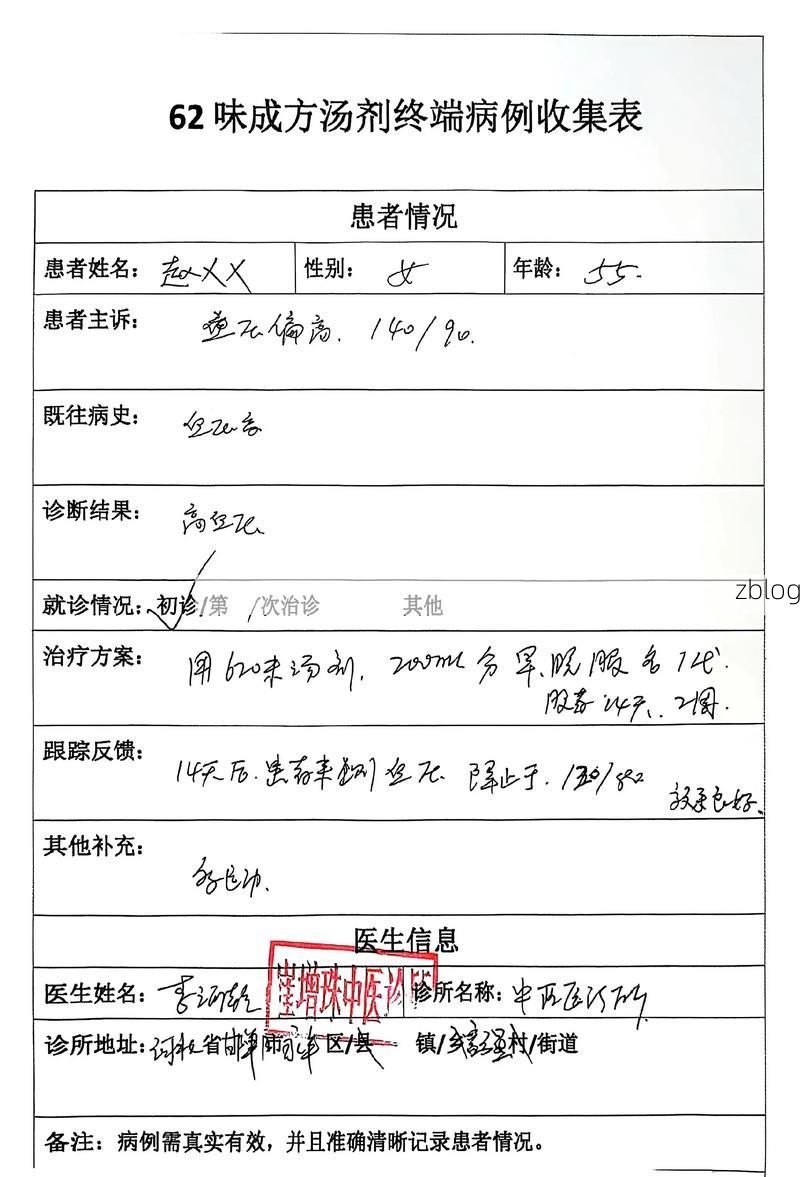 62 味成方汤剂终端病例收集表
患者情况
患者姓名： 赵XX 性别： 女 年龄： 55.
患者主诉： 血压偏高. 140/90.
既往病史： 血压高
诊断结果： 高血压
就诊情况：初诊/第 /次治诊 其他
zblog
治疗方案： 用 味汤剂. 200ml 分早.晚服 1代.
服 14天. 2周.
跟踪反馈： 14天后. 患者来 血压
效果良好.
其他补充：
医生信息
医生姓名： 李 诊所名称： 中医诊所
增珠中医诊所
诊所地址： 省邯郸市 区/县 镇/乡 村/街道
备注：病例需真实有效，并且准确清晰记录患者情况。